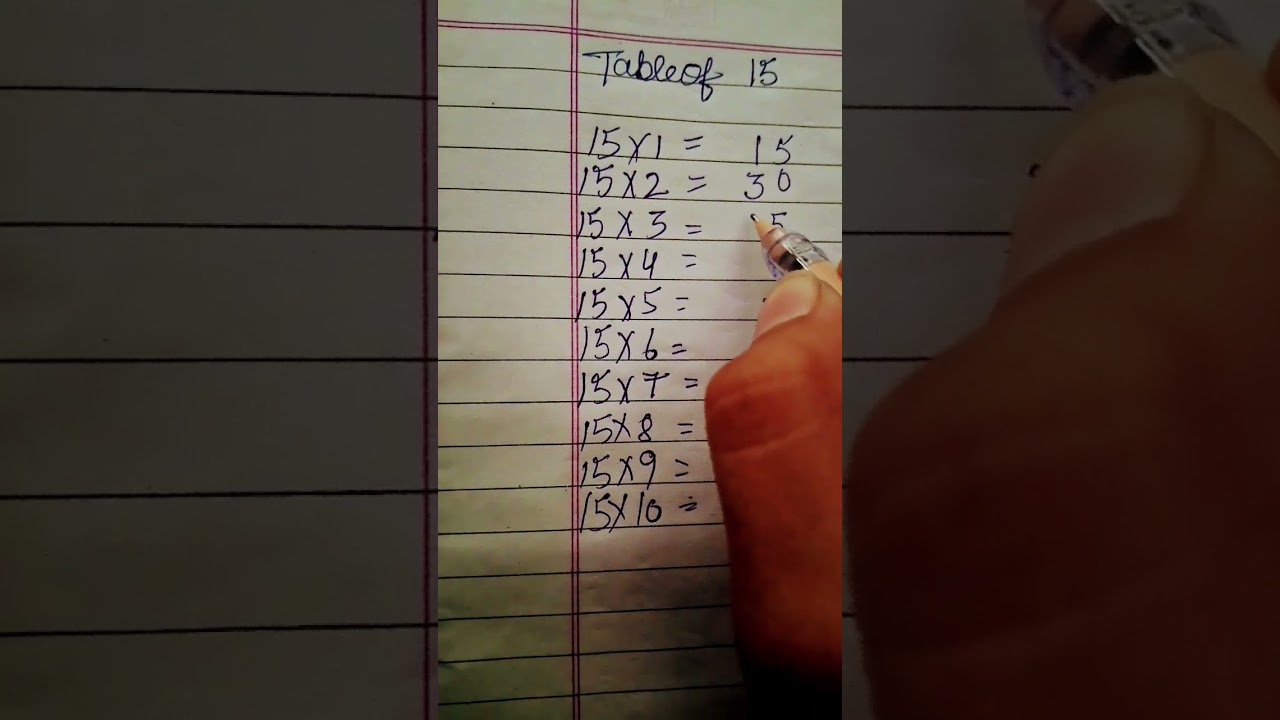 Table of 15
15 x 1 = 15
15 x 2 = 30
15 x 3 = 5
15 x 4 =
15 x 5 =
15 x 6 =
15 x 7 =
15 x 8 =
15 x 9 =
15 x 10 =